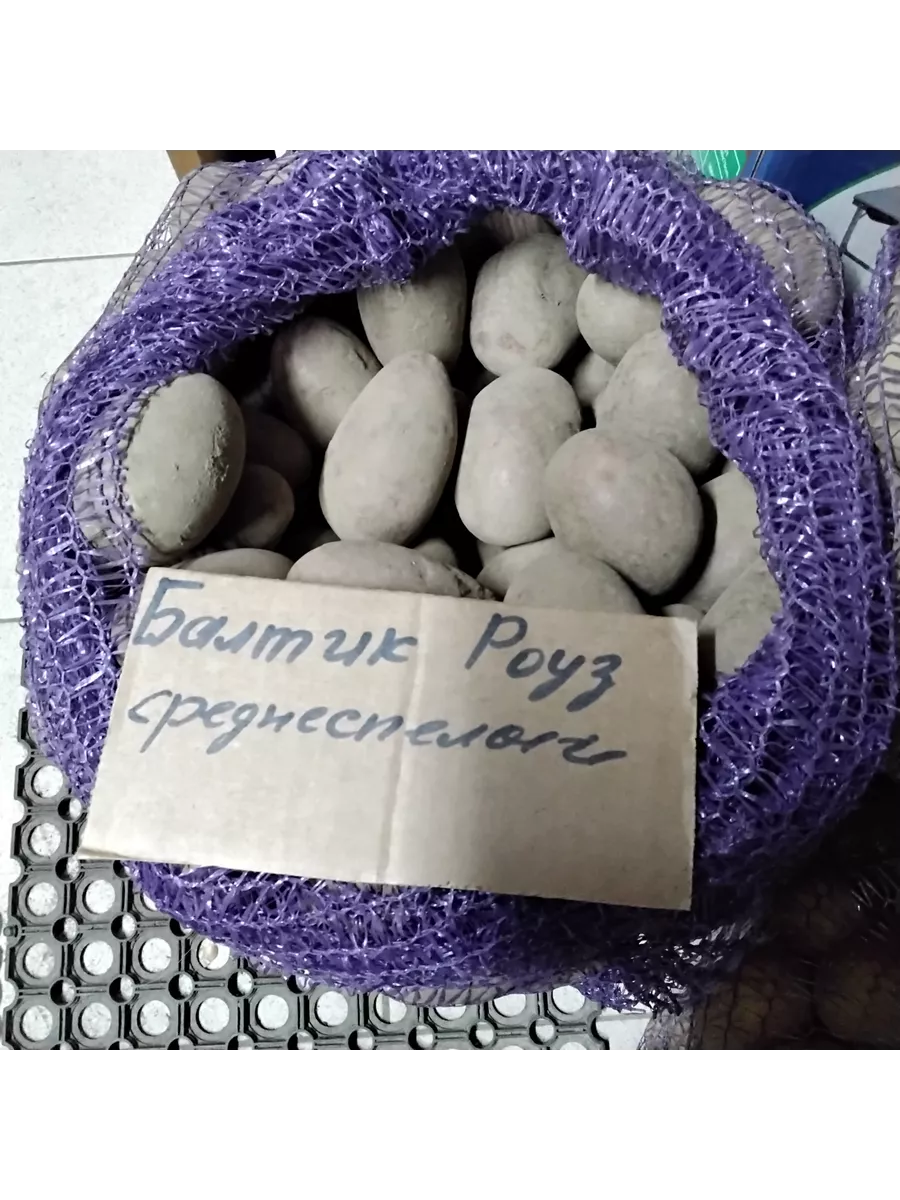 Балтик Роуз
среднеспелый